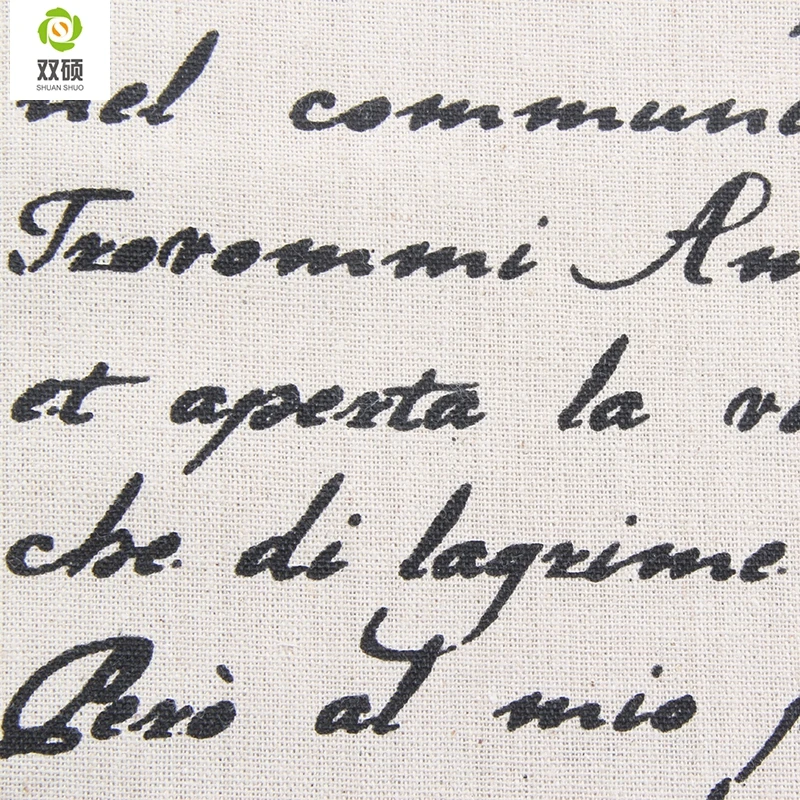 双硕
SHUAN SHUO
nel commun
Trovommi Am
et aperta la
che di lagrime
Però al mio